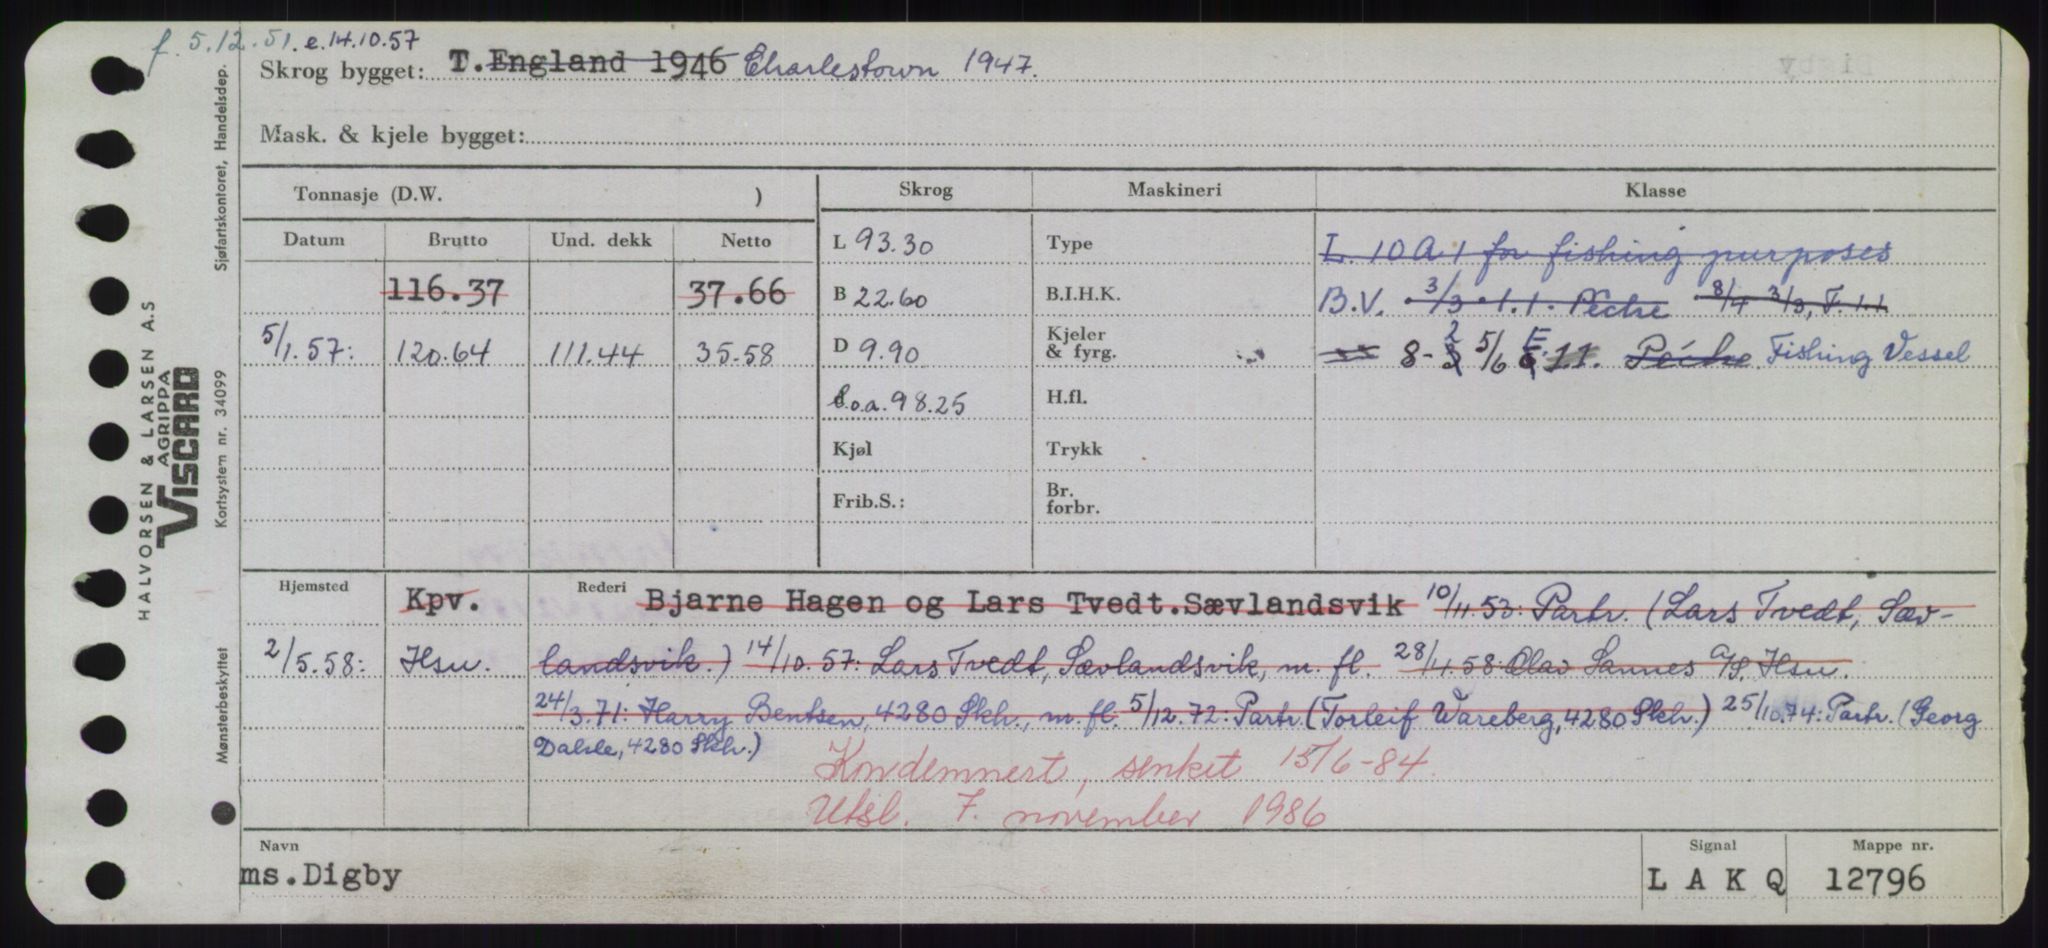 f. 5.12.51. e.14.10.57
Skrog bygget: T. England 1946 Charlestown 1947.
Mask. & kjele bygget:
Tonnasje (D.W. )
Skrog
Maskineri
Klasse
Datum
Brutto
Und. dekk
Netto
116.37
37.66
5/1.57: 120.64 111.44 35.58
L 93.30
B 22.60
D 9.90
l.o.a. 98.25
Kjøl
Frib.S.:
Type
B.I.H.K.
Kjeler
& fyrg.
H.fl.
Trykk
Br.
forbr.
L. 10 A 1 for fishing purposes
B.V. 3/3 . 1.1. Pêche 8/4 3/3, F. 1.1
8- 2 5/6 E 11. Pêche Fishing Vessel
Hjemsted Kpv. Rederi Bjarne Hagen og Lars Tvedt. Sævlandsvik 10/11.53: Partr. (Lars Tvedt, Sæv-
2/5.58: Hsu. landsvik.) 14/10.57: Lars Tvedt, Sævlandsvik, m. fl. 28/4.58: Olav Sannes A/S. Hsu.
24/3.71: Harry Bentsen, 4280 Skh., m. fl. 5/12.72: Partr. (Torleif Wareberg, 4280 Skh.) 25/10.74: Partr. (Georg
Dalsle, 4280 Skh.)
Kondemnert, senket 15/6-84.
Utsl. 7. november 1986
Navn
ms.Digby
Signal
L A K Q
Mappe nr.
12796
HALVORSEN & LARSEN A.S
AGRIPPA
VISCARD
Sjøfartskontoret, Handelsdep.
Kortsystem nr. 34099
Mønsterbeskyttet
Digby